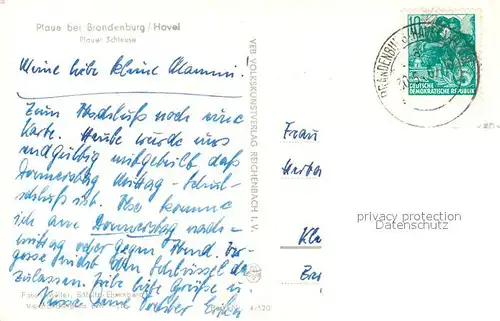 Plaue bei Brandenburg/Havel
Plauer Schleuse
Meine liebe kleine Mammi.
Zum Abschluß noch eine
Karte. Heute wurde uns
endgültig mitgeteilt daß
Donnerstag Mittag-Schul-
schluß ist. Also komme
ich am Donnerstag nach-
mittag oder gegen Abend. Ver-
gesse nicht den Schlüssel da
zulassen. Liebe Grüße u.
Küsse Deine Tochter
VEB VOLKSKUNSTVERLAG REICHENBACH I. V.
10
DEUTSCHE
DEMOKRATISCHE REPUBLIK
BRANDENBURG
Frau
privacy protection
Datenschutz
Foto